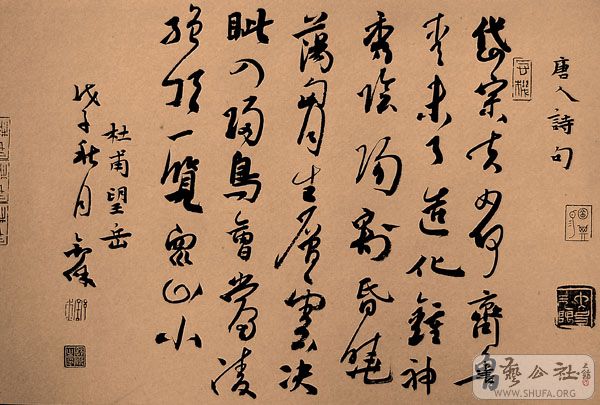 唐人詩句
岱宗夫如何齊魯
青未了造化鍾神
秀陰陽割昏曉
蕩胸生層雲决
眦入歸鳥會當凌
絕頂一覽眾山小
杜甫望岳
戊子秋月
公社
WWW.SHUFA.ORG